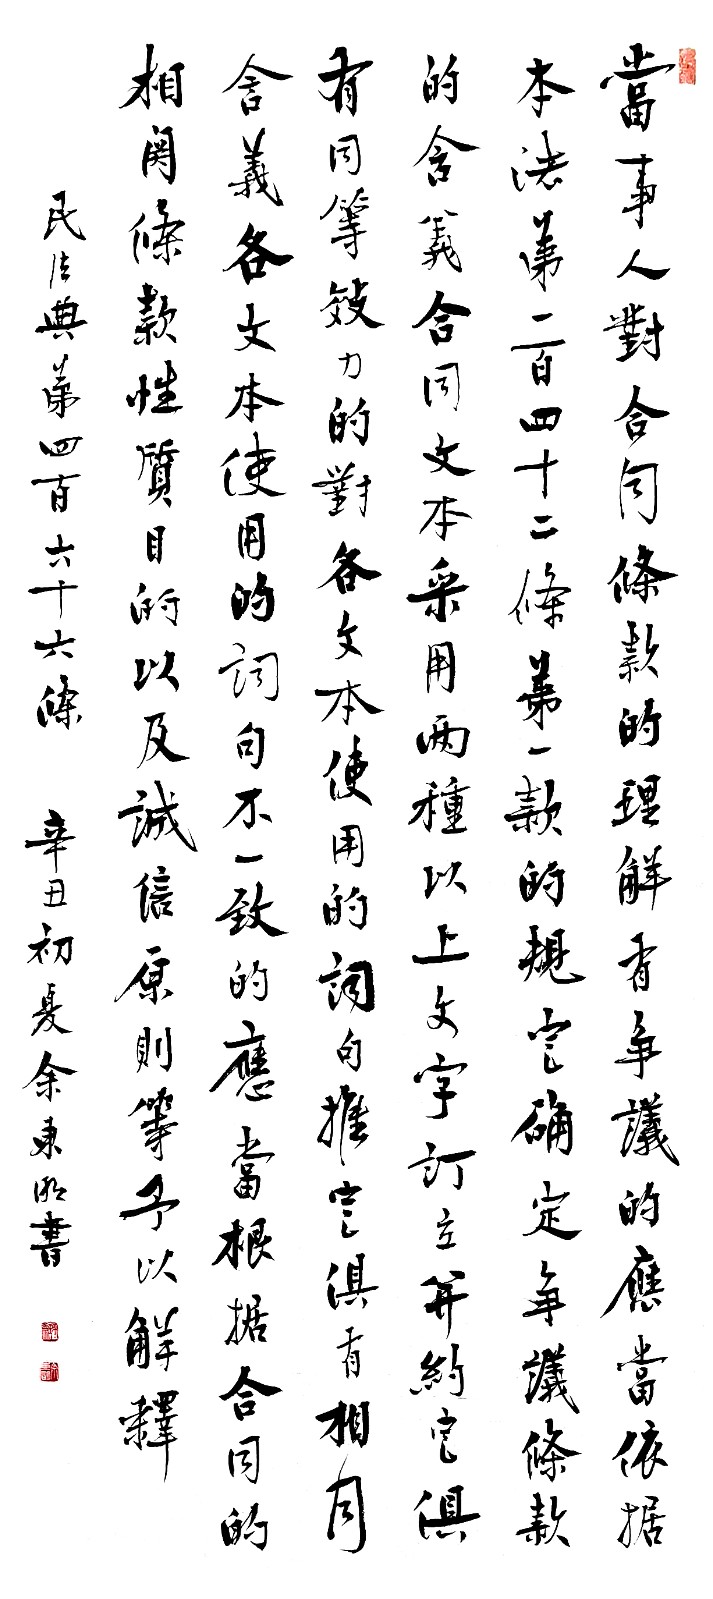 當事人對合同條款的理解有爭議的應當依据
本法第一百四十二條第一款的規定确定爭議條款
的含義合同文本采用两種以上文字訂立并約定俱
有同等效力的對各文本使用的詞句推定俱有相同
含義各文本使用的詞句不一致的應當根据合同的
相関條款性質目的以及誠信原則等予以解釋
民法典第四百六十六條 辛丑初夏余東明書